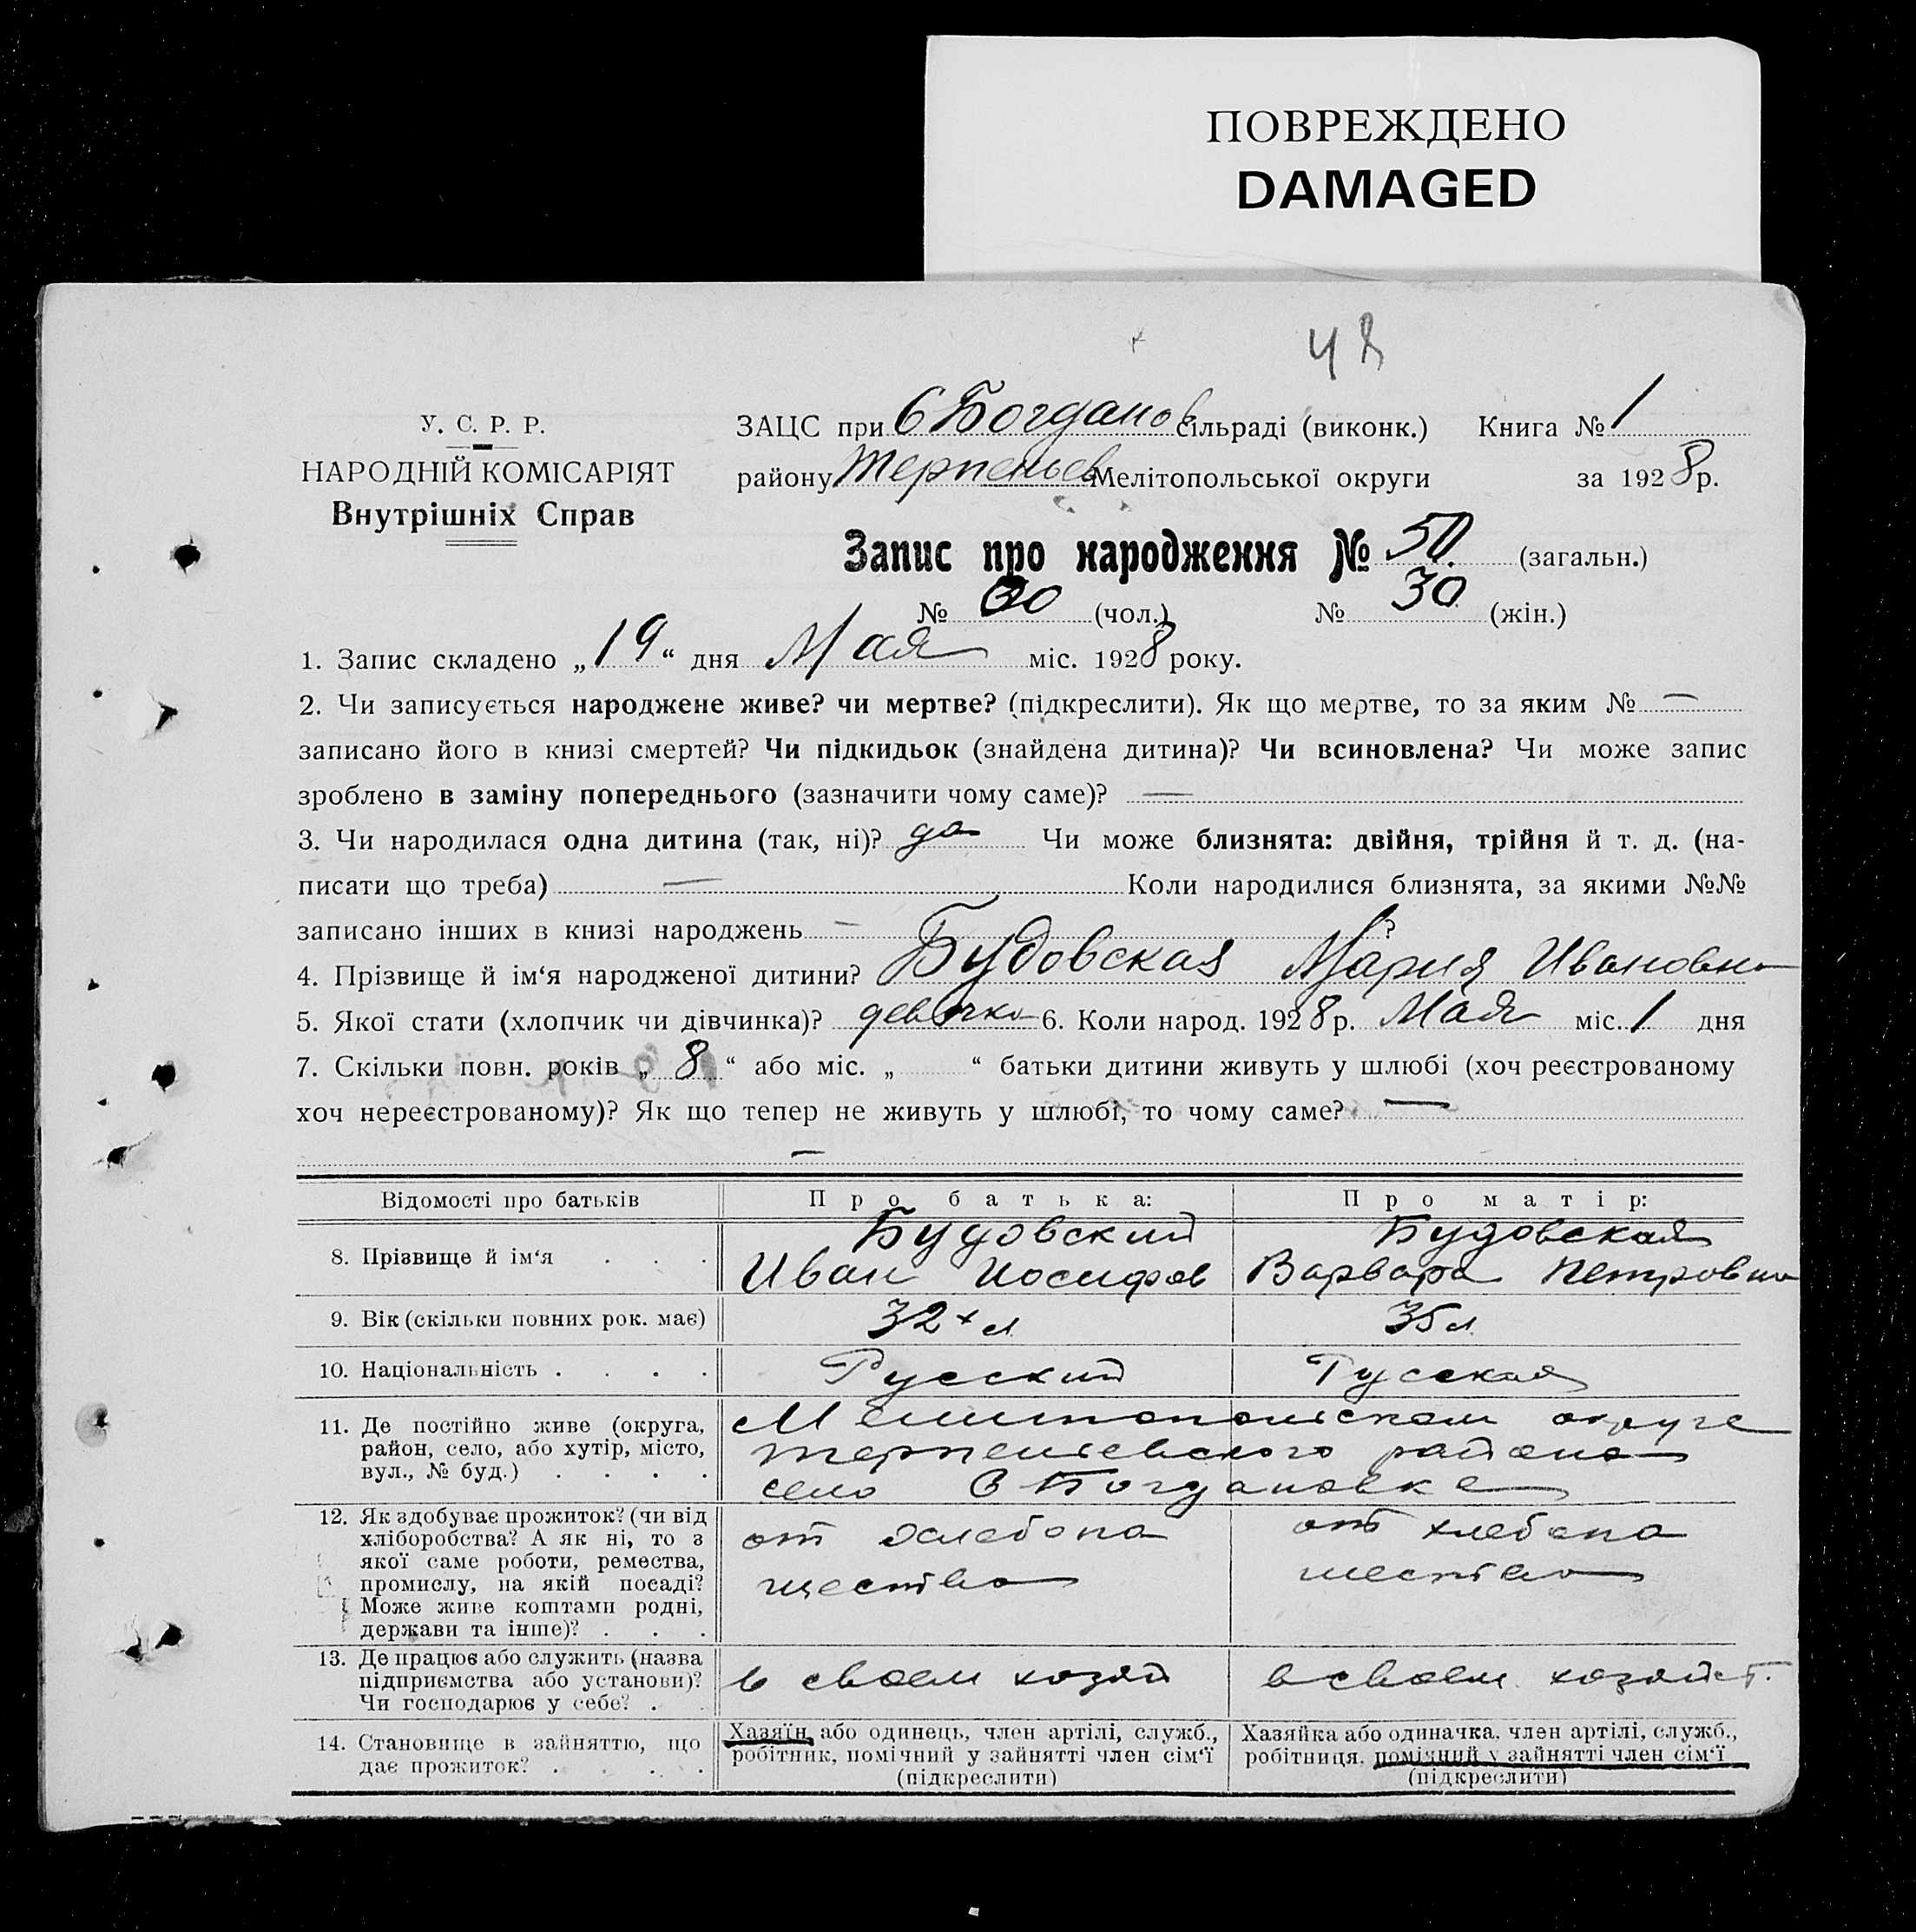 ПОВРЕЖДЕНО
DAMAGED
У. С. Р. Р.
НАРОДНІЙ КОМІСАРІЯТ
Внутрішніх Справ
ЗАЦС при Богданов сільраді (виконк.) Книга № 1
району Терпеньев Мелітопольської округи за 1928 р.
Запис про народження № (загальн.)
№ (чол.) № 30 (жін.)
1. Запис складено „19“ дня Мая міс. 1928 року.
2. Чи записується народжене живе? чи мертве? (підкреслити). Як що мертве, то за яким № —
записано його в книзі смертей? Чи підкидьок (знайдена дитина)? Чи всиновлена? Чи може запис
зроблено в заміну попереднього (зазначити чому саме)? —
3. Чи народилася одна дитина (так, ні)? да Чи може близнята: двійня, трійня й т. д. (на-
писати що треба) — Коли народилися близнята, за якими №№
записано інших в книзі народжень — ?
4. Прізвище й ім‘я народженої дитини? Будовская Мария Ивановна
5. Якої стати (хлопчик чи дівчинка)? девочка 6. Коли народ. 1928 р. Мая міс. 1 дня
7. Скільки повн. років „ 8 “ або міс. „ “ батьки дитини живуть у шлюбі (хоч реєстрованому
хоч нереєстрованому)? Як що тепер не живуть у шлюбі, то чому саме? —
—
Відомості про батьків Про батька: Про матір:
8. Прізвище й ім‘я . . . Будовский Иван Иосифов Будовская Варвара Петровна
9. Вік (скільки повних рок. має) 32 л 35 л.
10. Національність . . . . Русский Русская
11. Де постійно живе (округа,
район, село, або хутір, місто,
вул., № буд.) . . . .
Мелитопольском округе
Терпеньевского района
село Богдановке
12. Як здобуває прожиток? (чи від
хліборобства? А як ні, то з
якої саме роботи, ремества,
промислу, на якій посаді?
Може живе коштами родні,
держави та інше)? . . .
от хлебопа
щества
от хлебопа
шества
13. Де працює або служить (назва
підприємства або установи)?
Чи господарює у себе? .
в своем хозяй
в своем хозяйст.
14. Становище в зайняттю, що
дає прожиток? . . . .
Хазяїн, або одинець, член артілі, служб.,
робітник, помічний у зайнятті член сім‘ї
(підкреслити)
Хазяйка або одиначка, член артілі, служб.,
робітниця, помічний у зайнятті член сім‘ї
(підкреслити)